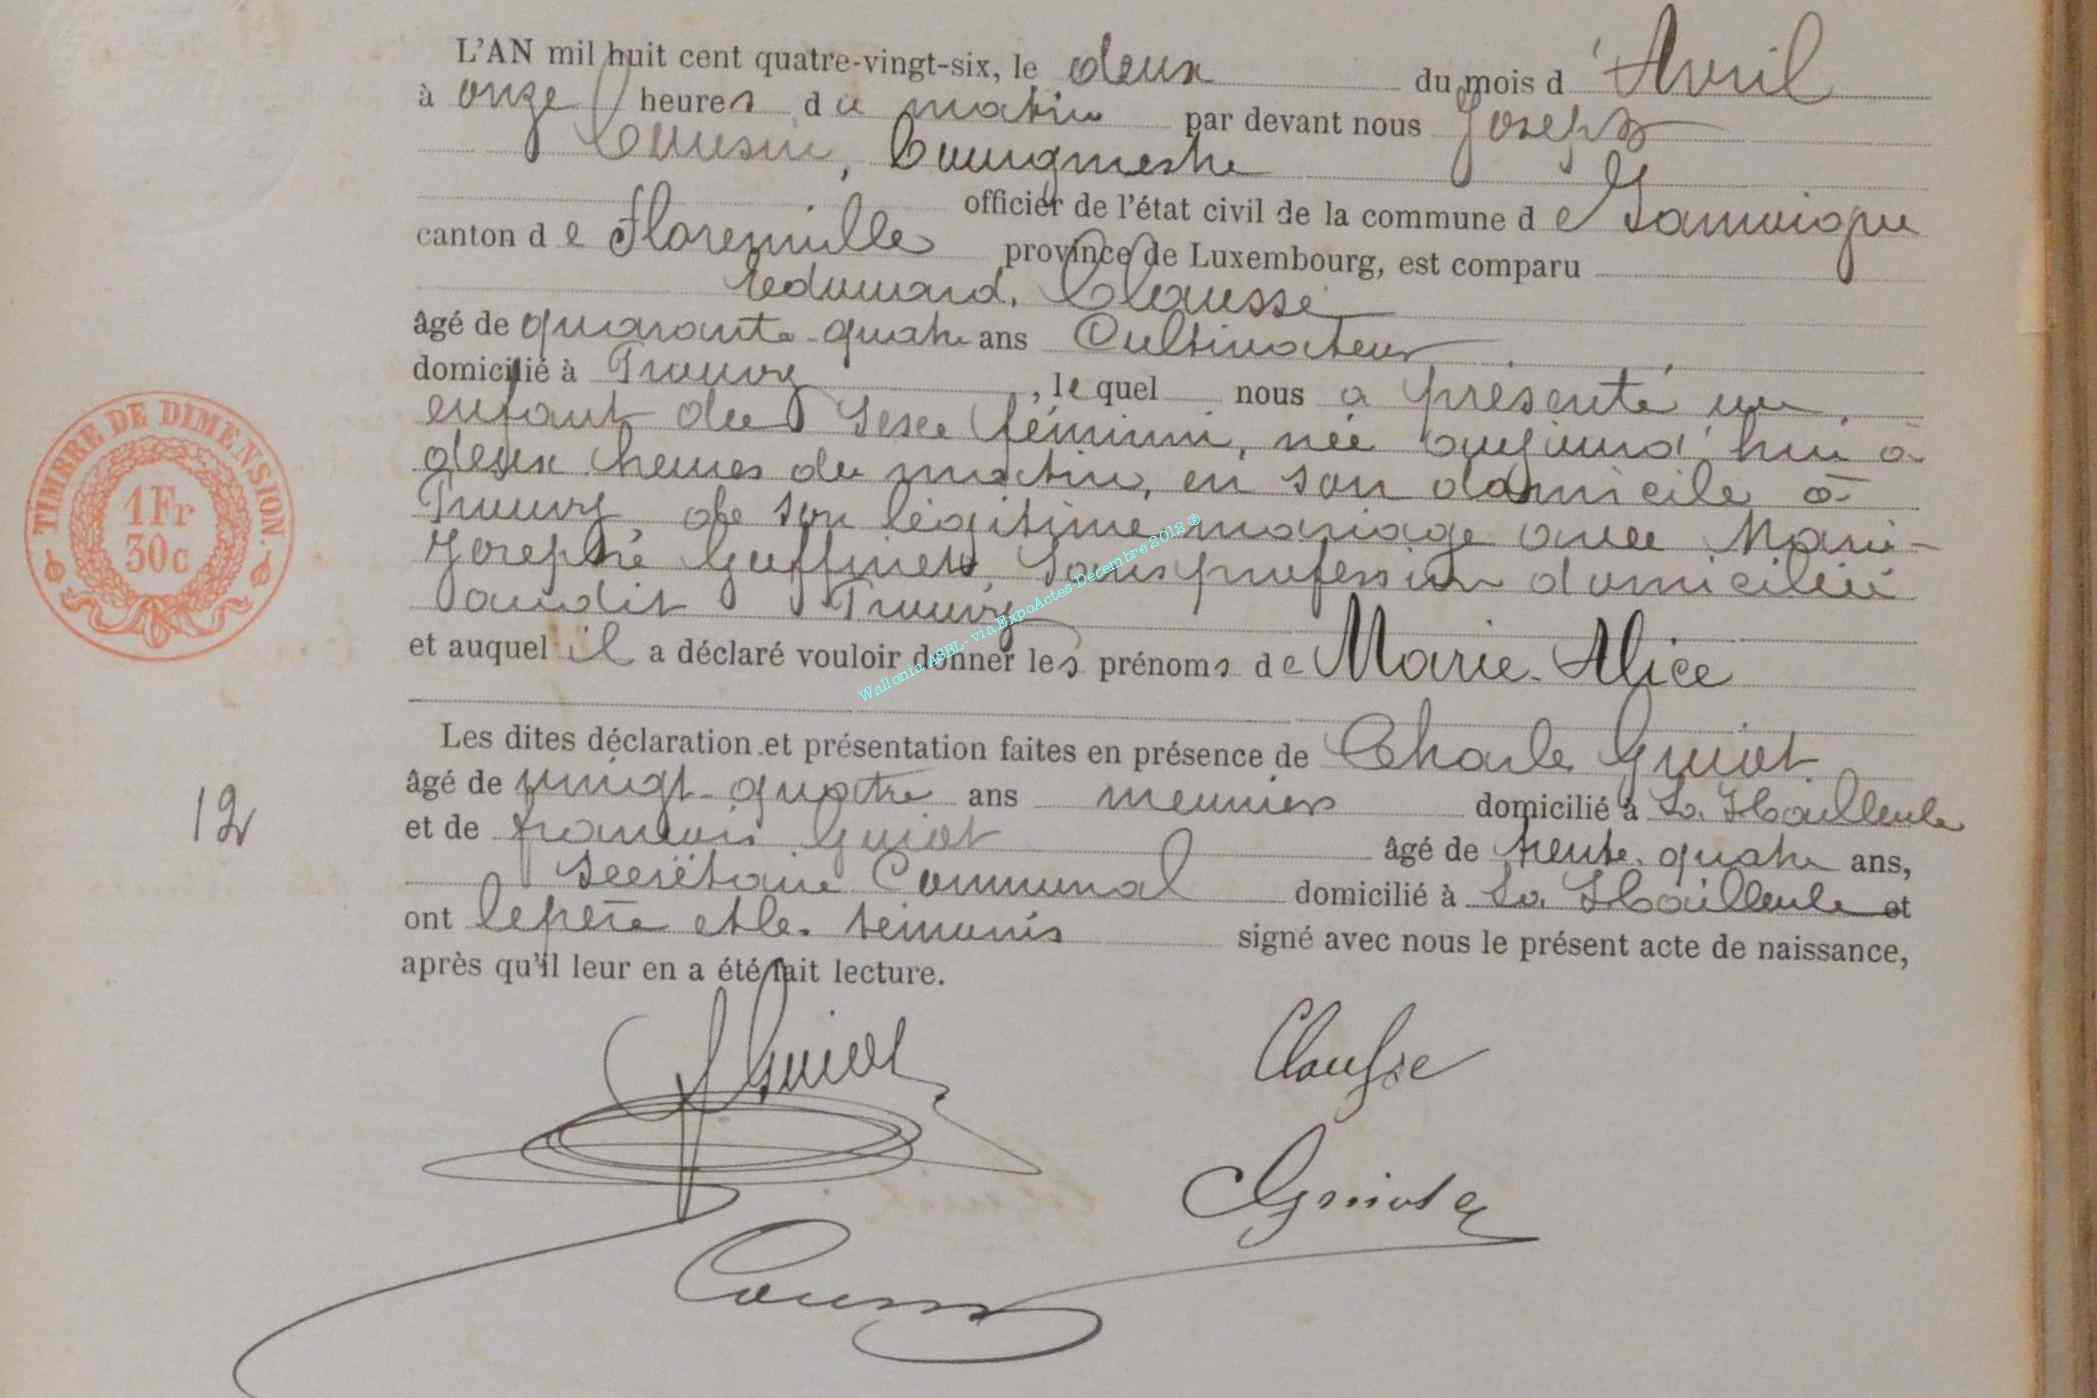 L'AN mil huit cent quatre-vingt-six, le deux du mois d'Avril
à onze heures du matin par devant nous Joseph
Cousin, bourgmestre
officier de l'état civil de la commune de Jamoigne
canton de Florenville province de Luxembourg, est comparu
Edouard Clausse
âgé de quarante-quatre ans Cultivateur
domicilié à Prouvy, lequel nous a présenté un
enfant du sexe féminin, née aujourd'hui à
deux heures du matin, en son domicile à
Prouvy, de son légitime mariage avec Marie-
Josephe Guffiets, sans profession domiciliée
audit Prouvy
et auquel il a déclaré vouloir donner les prénoms de Marie-Alice
Les dites déclaration et présentation faites en présence de Charles Guiot
âgé de vingt-quatre ans meunier domicilié à La Hailleule
et de françois Guiot âgé de trente-quatre ans,
secrétaire Communal domicilié à La Hailleule et
ont le père et les témoins signé avec nous le présent acte de naissance,
après qu'il leur en a été fait lecture.
TIMBRE DE DIMENSION.
1Fr
30c
12
Wallonia ASBL - via ExpoActes-Decembre 2018 ®
Guiot
Clausse
CGuiot
Cousin